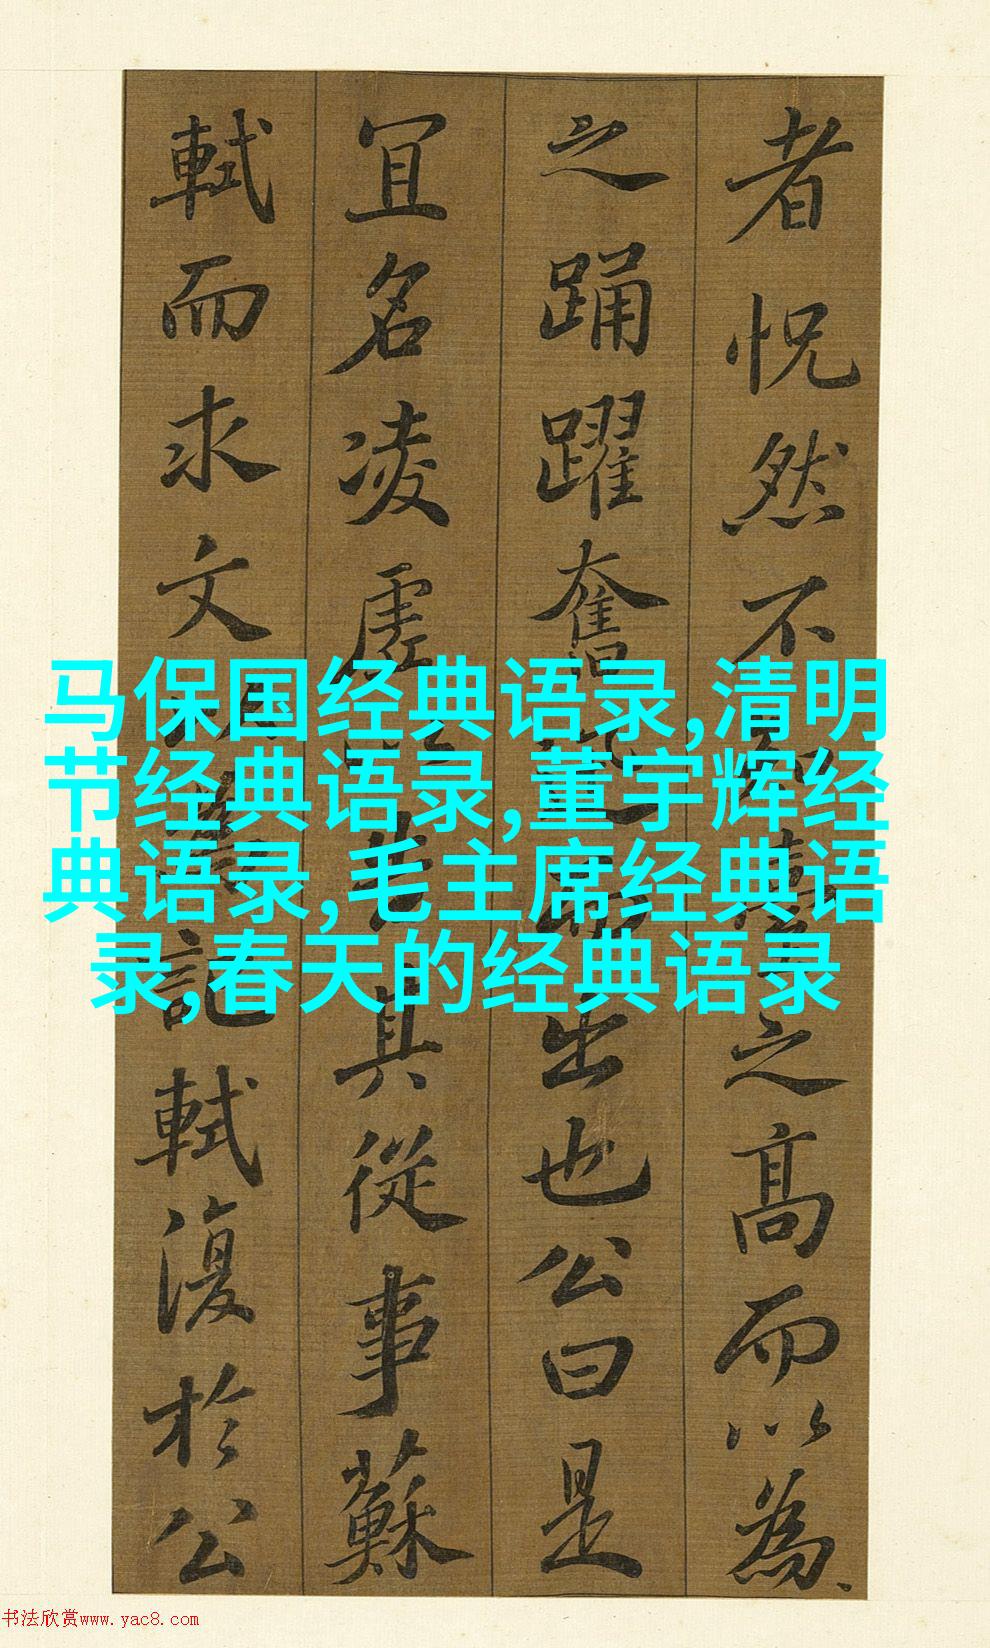 者怳然不知臺之高而以為
之踊躍奮迅而出也公曰是
宜名凌虛以告其從事蘇
軾而求文以為記軾復於公
马保国经典语录,清明
节经典语录,董宇辉经
典语录,毛主席经典语
录,春天的经典语录
书法欣赏www.yac8.com